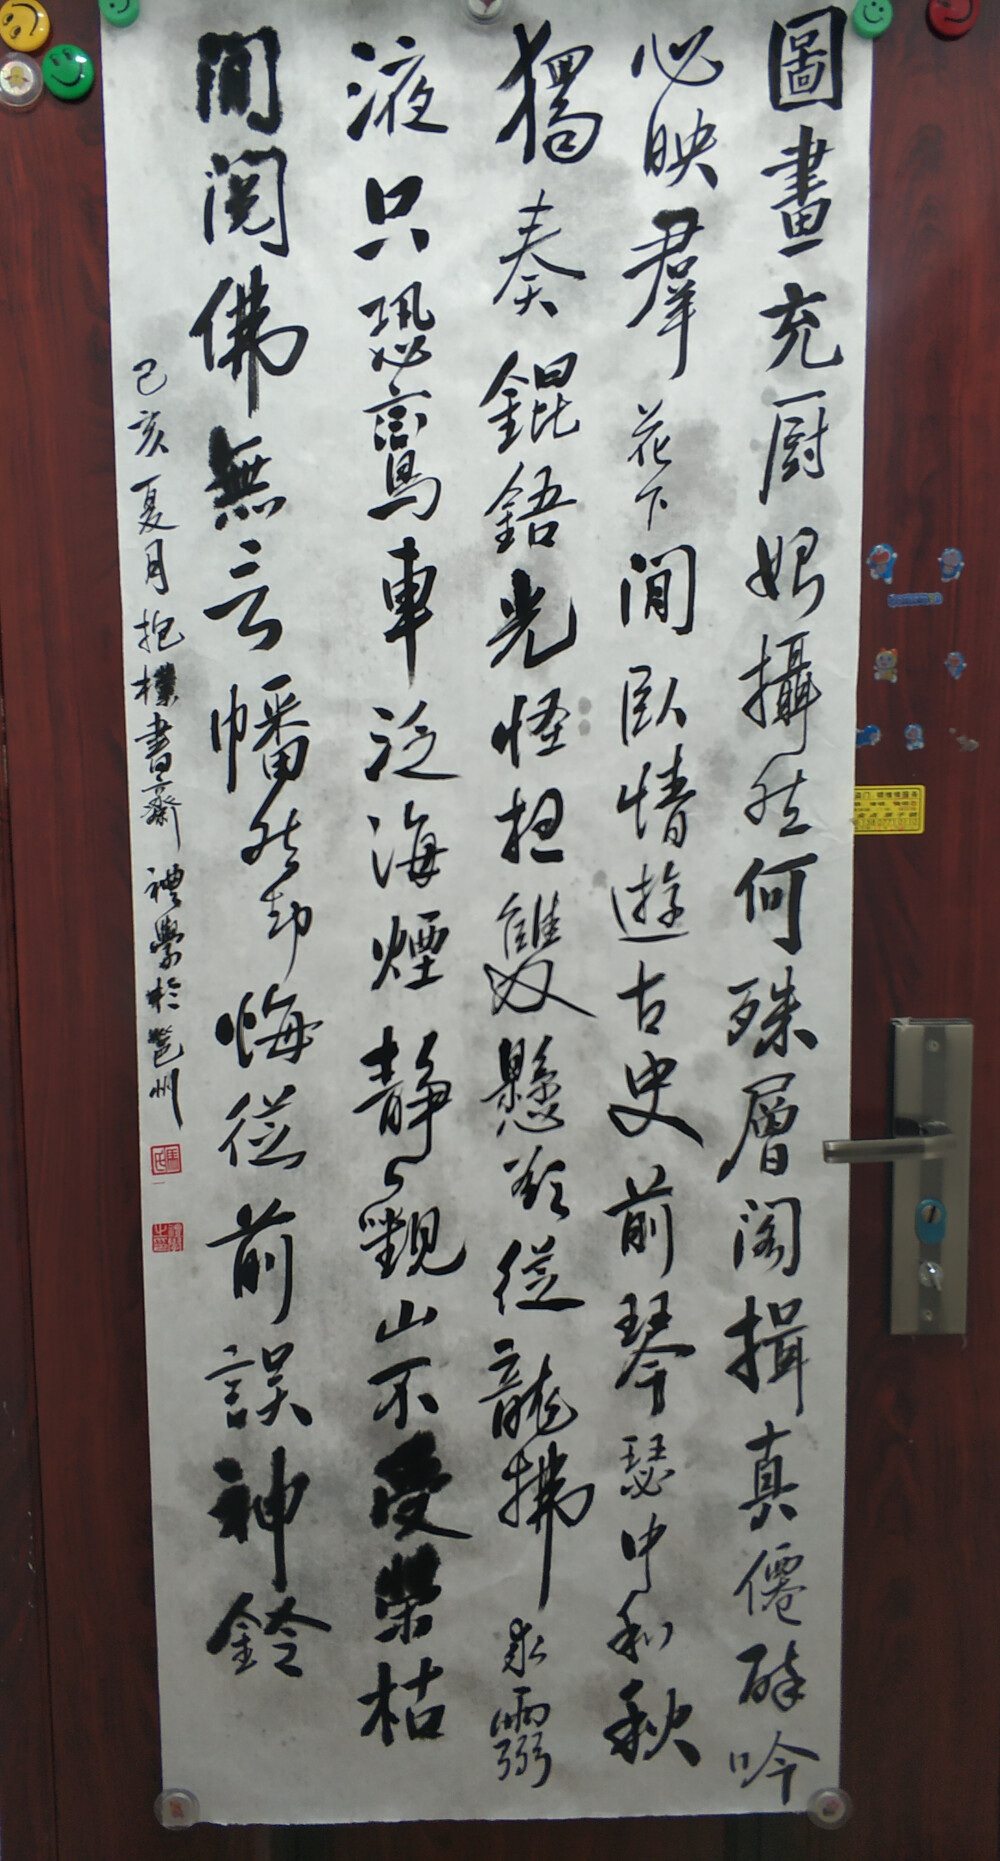 圖畫充厨始攝然何殊層閣揖真僊醉吟
心映群花下閒臥情遊古史前琴瑟中和秋
獨奏錕鋙光怪抯雙懸疑從龍拂
液只恐鸞車泛海煙靜觀山不受榮枯
閒閱佛無言幡然却悔從前誤神鈴
己亥夏月抱樸書齋禮學於邕州